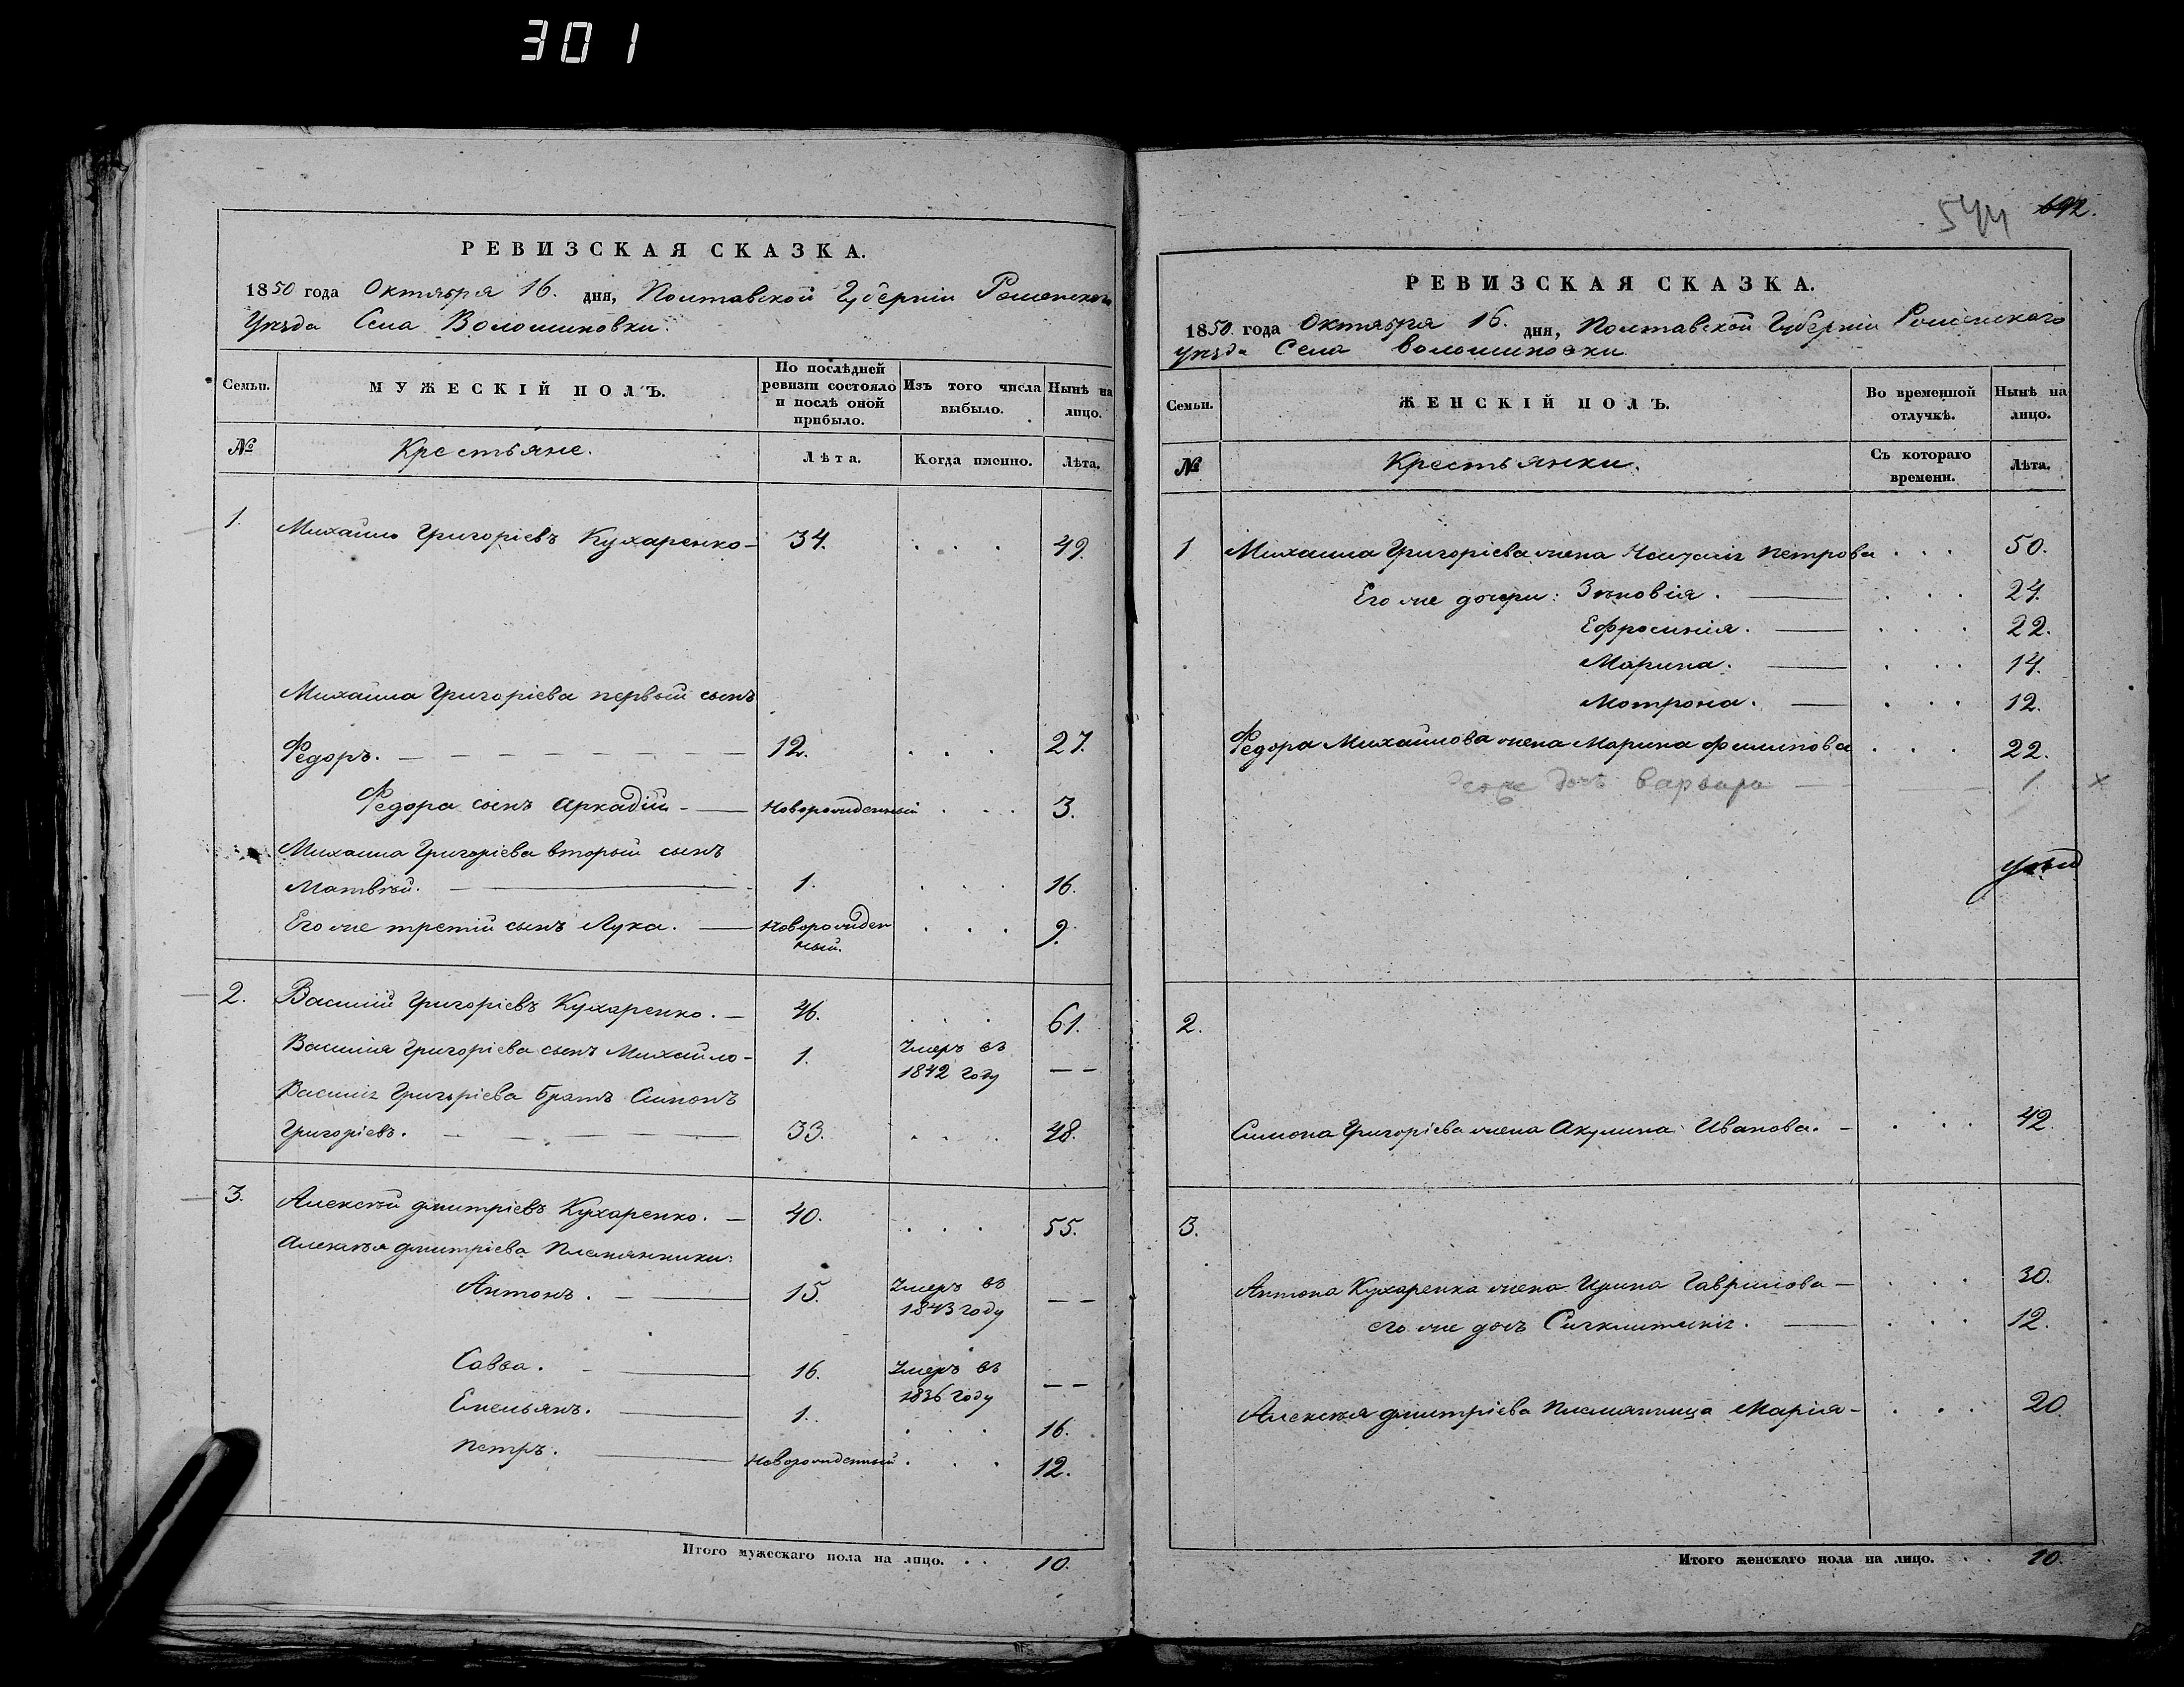 301
РЕВИЗСКАЯ СКАЗКА.
1850 года Октября 16. дня, Полтавской Губерніи Роменскаго
Уѣзда Села Волошиновки.
Семьи.
МУЖЕСКІЙ ПОЛЪ.
По послѣдней ревизіи состояло и послѣ оной прибыло.
Изъ того числа выбыло.
Нынѣ на лицо.
№
Крестьяне.
Лѣта.
Когда именно.
Лѣта.
1. Михайло Григорьевъ Кухаренко - 34. . . . 49.
Михаила Григоріева первый сынъ
Федоръ. — 12. . . . 27.
Федора сынъ Аркадій - — Новорожденный . . . 3.
Михаила Григоріева вторый сынъ
Матвѣй. — 1. . . . 16.
Его же третій сынъ Лука. — Новорожденный. . . . 9.
2. Василій Григоріевъ Кухаренко. — 46. . . . 61.
Василія Григоріева сынъ Михайло - 1. Умеръ въ 1842 году — —
Василія Григоріева братъ Симонъ
Григоріевъ. — 33. . . . 48.
3. Алексѣй Дмитріевъ Кухаренко. — 40. . . . 55.
Алексѣя Дмитріева племянники:
Антонъ. — 15. Умеръ въ 1843 году — —
Савва. — 16. Умеръ въ 1836 году — —
Емельянъ. — 1. . . . 16.
Петръ. — Новорожденный . . . 12.
Итого мужескаго пола на лицо. . . 10.
544 692.
РЕВИЗСКАЯ СКАЗКА.
1850 года Октября 16. дня, Полтавской Губерніи Роменскаго
уѣзда Села Волошиновки
Семьи.
ЖЕНСКІЙ ПОЛЪ.
Во временной отлучкѣ.
Нынѣ на лицо.
№
Крестьянки.
Съ котораго времени.
Лѣта.
1 Михаила Григоріева жена Петрова . . . 50.
Его же дочери: Зѣновія. — . . . 24.
Ефросинія. — . . . 22.
Марина. — . . . 14.
Мотрона. — . . . 12.
Федора Михайлова жена Марина Филипова . . . 22.
его же дочь Варвара — 1. ×
2.
Симона Григоріева жена Акулина Иванова. — . . . 42.
3.
Антона Кухаренка жена Ирина Гаврилова — . . . 30.
его же дочь — . . . 12.
Алексѣя Дмитріева племянница Марія — . . . 20.
Итого женскаго пола на лицо. . . 10.